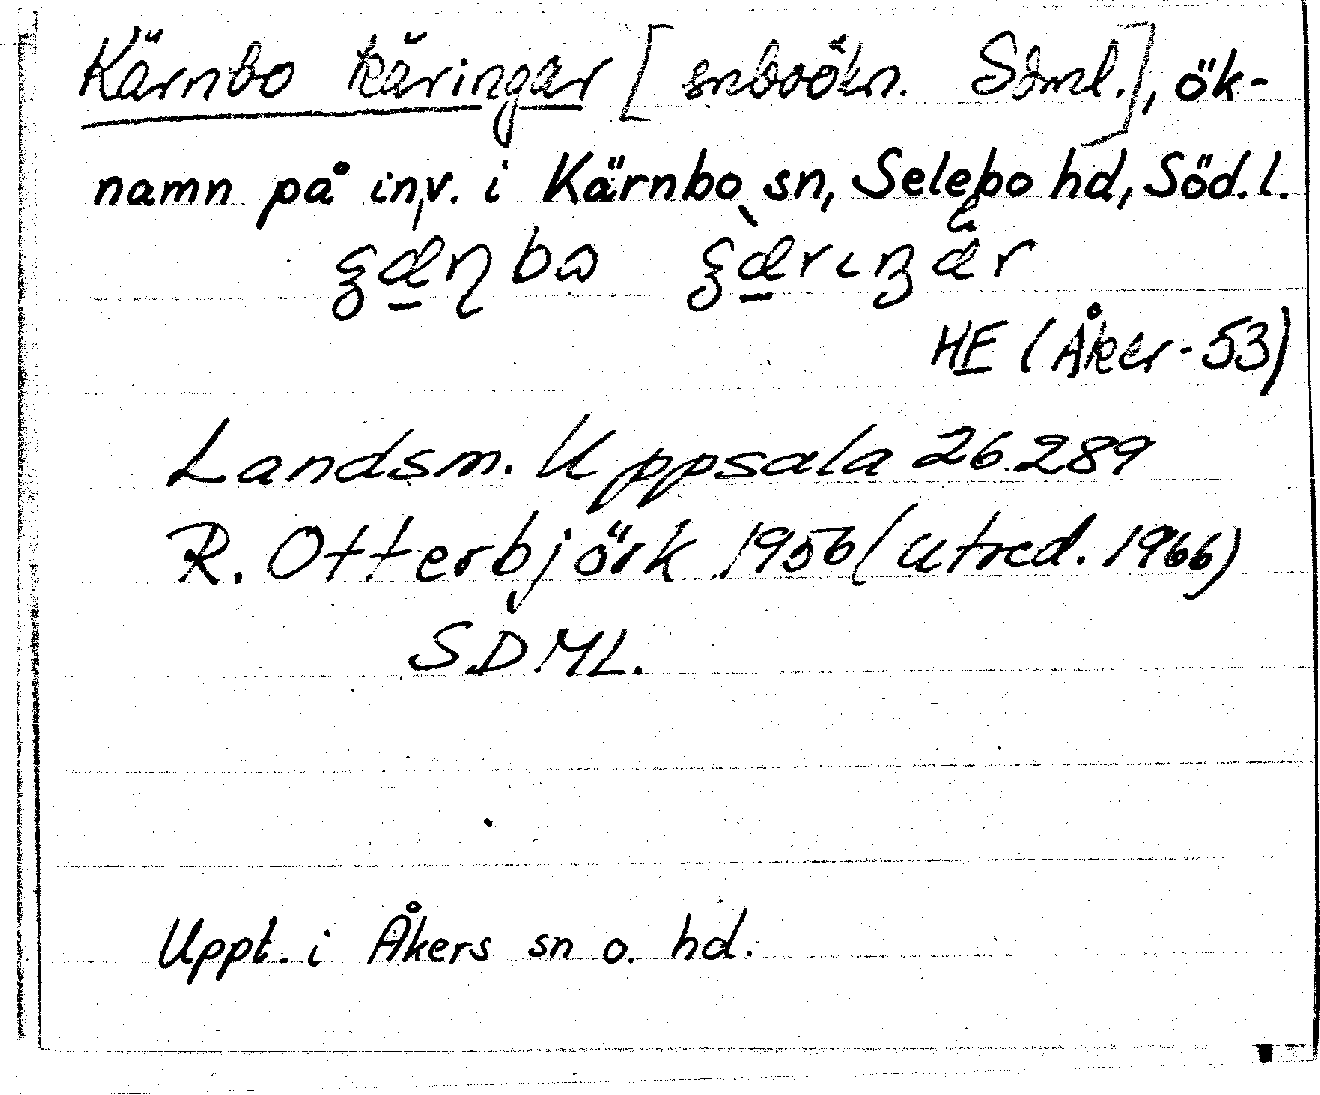 Kärnbo käringar [snboökn. Söml.], ök-
namn på inv. i Kärnbo sn, Selebo hd, Söd.l.
HE (Åker-53)
Landsm. Uppsala 26.289
R. Otterbjörk 1956 (utred. 1966)
SDML.
Uppt. i Åkers sn o. hd.